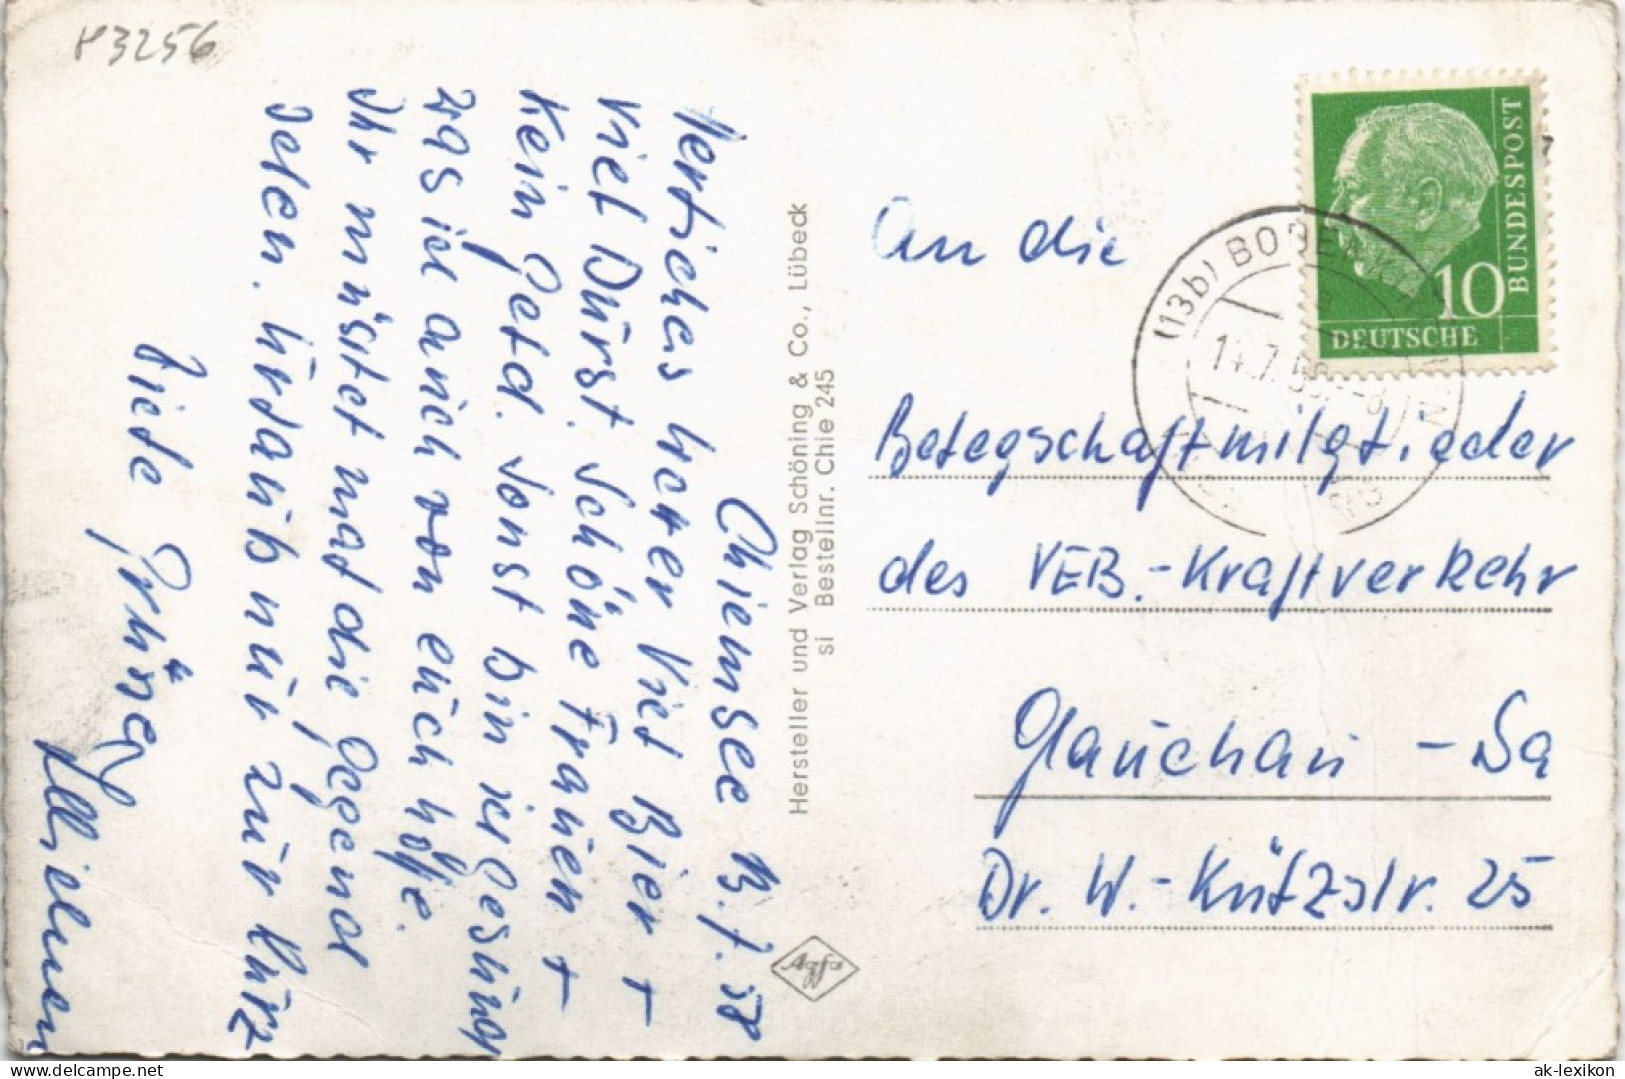 83256
Chiemsee 13.7.58
Herzliches Wetter Viel Bier +
Viel Durst. Schöne Frauen +
Kein Geld. Sonst bin ich gesund
was ich auch von euch hoffe.
Ihr müstet mal die Gegend
sehen. Urlaub nur zu kurz
Viele Grüße
Hersteller und Verlag Schöning & Co., Lübeck
si Bestellnr. Chie 245
Agfa
10
DEUTSCHE
BUNDESPOST
(13b) BODENK
14.7.58
An die
Belegschaftmitglieder
des VEB.-Kraftverkehr
Glauchau - Sa
Dr. W.-Külzstr. 25
ak-lexikon